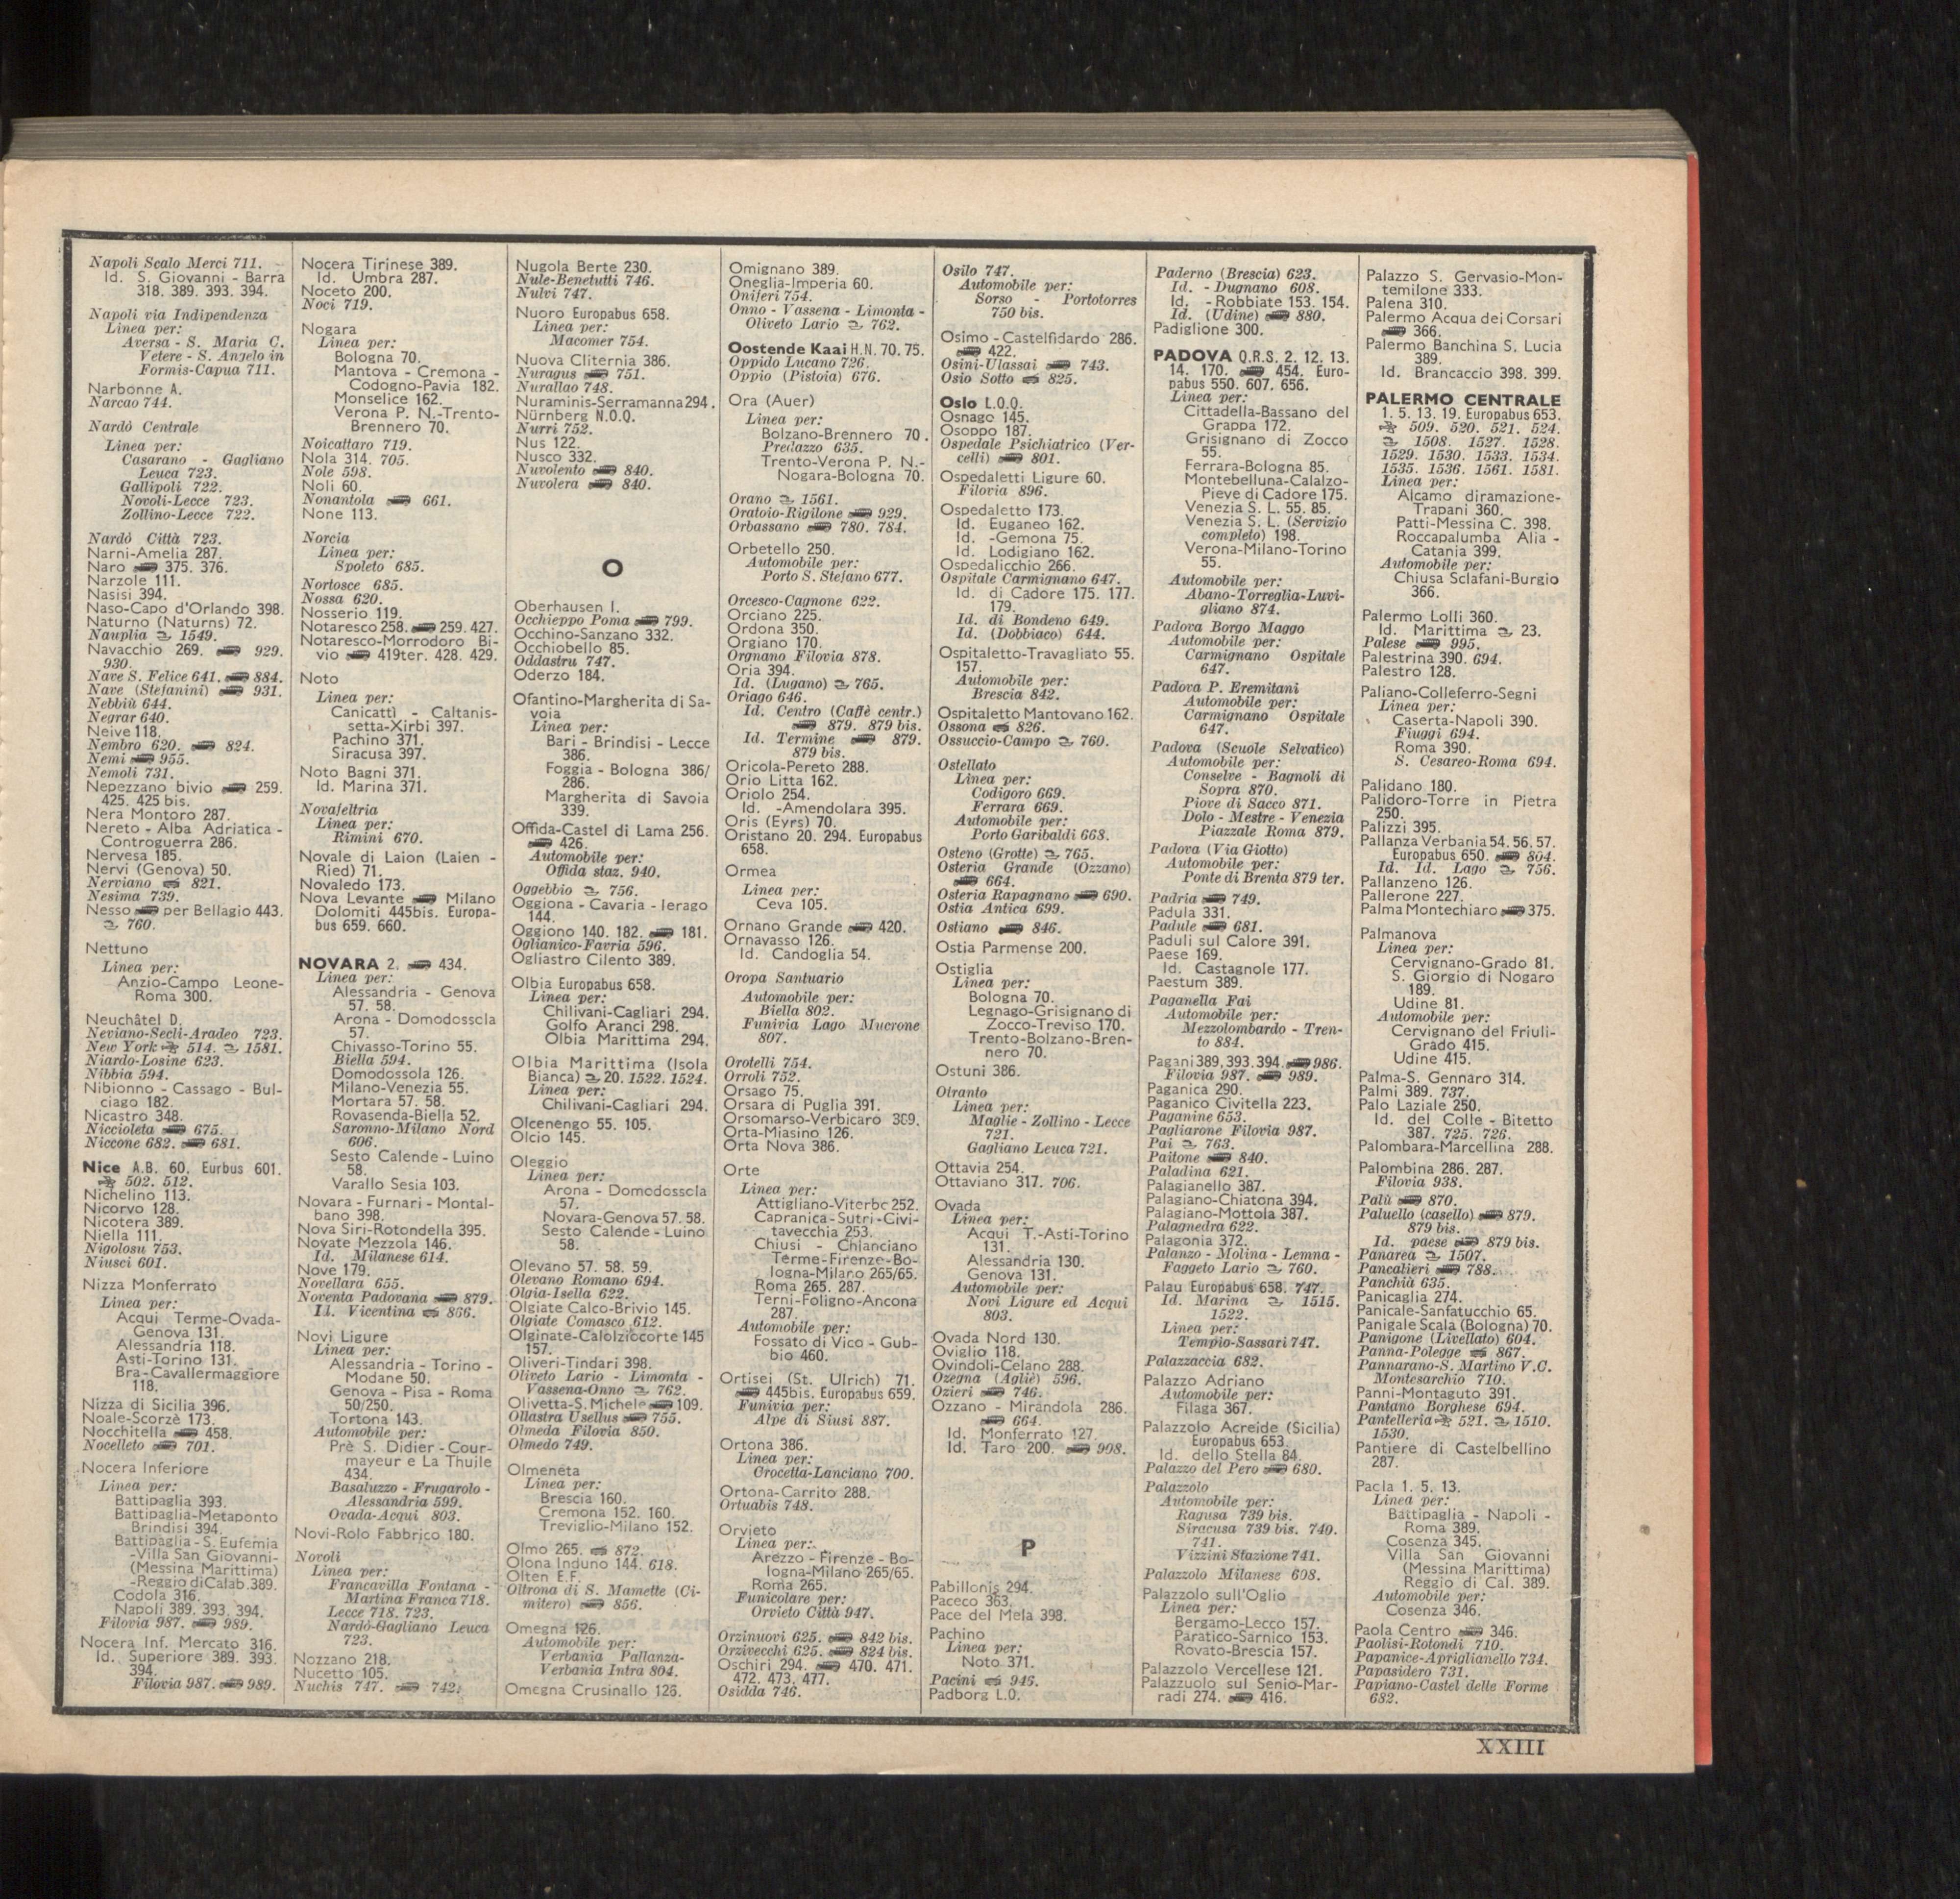 Napoli Scalo Merci 711.
Id. S. Giovanni - Barra
318. 389. 393. 394.
Napoli via Indipendenza
Linea per:
Aversa - S. Maria C.
Vetere - S. Angelo in
Formis-Capua 711.
Narbonne A.
Narcao 744.
Nardò Centrale
Linea per:
Casarano - Gagliano
Leuca 723.
Gallipoli 722.
Novoli-Lecce 723.
Zollino-Lecce 722.
Nardò Città 723.
Narni-Amelia 287.
Naro 375. 376.
Narzole 111.
Nasisi 394.
Naso-Capo d'Orlando 398.
Naturno (Naturns) 72.
Nauplia 1549.
Navacchio 269. 929.
930.
Nave S. Felice 641. 884.
Nave (Stefanini) 931.
Nebbiù 644.
Negrar 640.
Neive 118.
Nembro 620. 824.
Nemi 955.
Nemoli 731.
Nepezzano bivio 259.
425. 425 bis.
Nera Montoro 287.
Nereto - Alba Adriatica -
Controguerra 286.
Nervesa 185.
Nervi (Genova) 50.
Nerviano 821.
Nesima 739.
Nesso per Bellagio 443.
760.
Nettuno
Linea per:
Anzio-Campo Leone-
Roma 300.
Neuchâtel D.
Neviano-Seclì-Aradeo 723.
New York 514. 1581.
Niardo-Losine 623.
Nibbia 594.
Nibionno - Cassago - Bul-
ciago 182.
Nicastro 348.
Niccioleta 675.
Niccone 682. 681.
Nice A.B. 60. Eurbus 601.
502. 512.
Nichelino 113.
Nicorvo 128.
Nicotera 389.
Niella 111.
Nigolosu 753.
Niusci 601.
Nizza Monferrato
Linea per:
Acqui Terme-Ovada-
Genova 131.
Alessandria 118.
Asti-Torino 131.
Bra-Cavallermaggiore
118.
Nizza di Sicilia 396.
Noale-Scorzè 173.
Nocchitella 458.
Nocelleto 701.
Nocera Inferiore
Linea per:
Battipaglia 393.
Battipaglia-Metaponto
Brindisi 394.
Battipaglia - S. Eufemia
-Villa San Giovanni-
(Messina Marittima)
-Reggio di Calab. 389.
Codola 316.
Napoli 389. 393. 394.
Filovia 987. 989.
Nocera Inf. Mercato 316.
Id. Superiore 389. 393.
394.
Filovia 987. 989.
Nocera Tirinese 389.
Id. Umbra 287.
Noceto 200.
Noci 719.
Nogara
Linea per:
Bologna 70.
Mantova - Cremona -
Codogno-Pavia 182.
Monselice 162.
Verona P. N.-Trento-
Brennero 70.
Noicattaro 719.
Nola 314. 705.
Nole 598.
Noli 60.
Nonantola 661.
None 113.
Norcia
Linea per:
Spoleto 685.
Nortosce 685.
Nossa 620.
Nosserio 119.
Notaresco 258. 259. 427.
Notaresco-Morrodoro Bi-
vio 419ter. 428. 429.
Noto
Linea per:
Canicattì - Caltanis-
setta-Xirbi 397.
Pachino 371.
Siracusa 397.
Noto Bagni 371.
Id. Marina 371.
Novafeltria
Linea per:
Rimini 670.
Novale di Laion (Laien -
Ried) 71.
Novaledo 173.
Nova Levante Milano
Dolomiti 445bis. Europa-
bus 659. 660.
NOVARA 2. 434.
Linea per:
Alessandria - Genova
57. 58.
Arona - Domodossola
57.
Chivasso-Torino 55.
Biella 594.
Domodossola 126.
Milano-Venezia 55.
Mortara 57. 58.
Rovasenda-Biella 52.
Saronno-Milano Nord
606.
Sesto Calende - Luino
58.
Varallo Sesia 103.
Novara - Furnari - Montal-
bano 398.
Nova Siri-Rotondella 395.
Novate Mezzola 146.
Id. Milanese 614.
Nove 179.
Novellara 655.
Noventa Padovana 879.
Id. Vicentina 866.
Novi Ligure
Linea per:
Alessandria - Torino -
Modane 50.
Genova - Pisa - Roma
50/250.
Tortona 143.
Automobile per:
Prè S. Didier - Cour-
mayeur e La Thuile
434.
Basaluzzo - Frugarolo -
Alessandria 599.
Ovada-Acqui 803.
Novi-Rolo Fabbrico 180.
Novoli
Linea per:
Francavilla Fontana -
Martina Franca 718.
Lecce 718. 723.
Nardò-Gagliano Leuca
723.
Nozzano 218.
Nucetto 105.
Nuchis 747. 742.
Nugola Berte 230.
Nule-Benetutti 746.
Nulvi 747.
Nuoro Europabus 658.
Linea per:
Macomer 754.
Nuova Cliternia 386.
Nuragus 751.
Nurallao 748.
Nuraminis-Serramanna 294.
Nürnberg N.O.Q.
Nurri 752.
Nus 122.
Nusco 332.
Nuvolento 840.
Nuvolera 840.
O
Oberhausen I.
Occhieppo Poma 799.
Occhino-Sanzano 332.
Occhiobello 85.
Oddastru 747.
Oderzo 184.
Ofantino-Margherita di Sa-
voia
Linea per:
Bari - Brindisi - Lecce
386.
Foggia - Bologna 386/
286.
Margherita di Savoia
339.
Offida-Castel di Lama 256.
426.
Automobile per:
Offida staz. 940.
Oggebbio 756.
Oggiona - Cavaria - Ierago
144.
Oggiono 140. 182. 181.
Oglianico-Favria 596.
Ogliastro Cilento 389.
Olbia Europabus 658.
Linea per:
Chilivani-Cagliari 294.
Golfo Aranci 298.
Olbia Marittima 294.
Olbia Marittima (Isola
Bianca) 20. 1522. 1524.
Linea per:
Chilivani-Cagliari 294.
Olcenengo 55. 105.
Olcio 145.
Oleggio
Linea per:
Arona - Domodossola
57.
Novara-Genova 57. 58.
Sesto Calende - Luino
58.
Olevano 57. 58. 59.
Olevano Romano 694.
Olgia-Isella 622.
Olgiate Calco-Brivio 145.
Olgiate Comasco 612.
Olginate-Calolziocorte 145
157.
Oliveri-Tindari 398.
Oliveto Lario - Limonta -
Vassena-Onno 762.
Olivetta-S. Michele 109.
Ollastra Usellus 755.
Olmeda Filovia 850.
Olmedo 749.
Olmeneta
Linea per:
Brescia 160.
Cremona 152. 160.
Treviglio-Milano 152.
Olmo 265. 872.
Olona Induno 144. 618.
Olten E.F.
Oltrona di S. Mamette (Ci-
mitero) 856.
Omegna 126.
Automobile per:
Verbania Pallanza-
Verbania Intra 804.
Omegna Crusinallo 126.
Omignano 389.
Oneglia-Imperia 60.
Oniferi 754.
Onno - Vassena - Limonta -
Oliveto Lario 762.
Oostende Kaai H.N. 70. 75.
Oppido Lucano 726.
Oppio (Pistoia) 676.
Ora (Auer)
Linea per:
Bolzano-Brennero 70.
Predazzo 635.
Trento-Verona P. N.-
Nogara-Bologna 70.
Orano 1561.
Oratoio-Rigilone 929.
Orbassano 780. 784.
Orbetello 250.
Automobile per:
Porto S. Stefano 677.
Orcesco-Cagnone 622.
Orciano 225.
Ordona 350.
Orgiano 170.
Orgnano Filovia 878.
Oria 394.
Id. (Lugano) 765.
Oriago 646.
Id. Centro (Caffè centr.)
879. 879 bis.
Id. Termine 879.
879 bis.
Oricola-Pereto 288.
Orio Litta 162.
Oriolo 254.
Id. -Amendolara 395.
Oris (Eyrs) 70.
Oristano 20. 294. Europabus
658.
Ormea
Linea per:
Ceva 105.
Ornano Grande 420.
Ornavasso 126.
Id. Candoglia 54.
Oropa Santuario
Automobile per:
Biella 802.
Funivia Lago Mucrone
807.
Orotelli 754.
Orroli 752.
Orsago 75.
Orsara di Puglia 391.
Orsomarso-Verbicaro 389.
Orta-Miasino 126.
Orta Nova 386.
Orte
Linea per:
Attigliano-Viterbo 252.
Capranica-Sutri-Civi-
tavecchia 253.
Chiusi - Chianciano
Terme-Firenze-Bo-
logna-Milano 265/65.
Roma 265. 287.
Terni-Foligno-Ancona
287.
Automobile per:
Fossato di Vico - Gub-
bio 460.
Ortisei (St. Ulrich) 71.
445bis. Europabus 659.
Funivia per:
Alpe di Siusi 887.
Ortona 386.
Linea per:
Crocetta-Lanciano 700.
Ortona-Carrito 288.
Ortuabis 748.
Orvieto
Linea per:
Arezzo - Firenze - Bo-
logna-Milano 265/65.
Roma 265.
Funicolare per:
Orvieto Città 947.
Orzinuovi 625. 842 bis.
Orzivecchi 625. 824 bis.
Oschiri 294. 470. 471.
472. 473. 477.
Osidda 746.
Osilo 747.
Automobile per:
Sorso - Portotorres
750 bis.
Osimo - Castelfidardo 286.
422.
Osini-Ulassai 743.
Osio Sotto 825.
Oslo L.O.Q.
Osnago 145.
Osoppo 187.
Ospedale Psichiatrico (Ver-
celli) 801.
Ospedaletti Ligure 60.
Filovia 896.
Ospedaletto 173.
Id. Euganeo 162.
Id. -Gemona 75.
Id. Lodigiano 162.
Ospedalicchio 266.
Ospitale Carmignano 647.
Id. di Cadore 175. 177.
179.
Id. di Bondeno 649.
Id. (Dobbiaco) 644.
Ospitaletto-Travagliato 55.
157.
Automobile per:
Brescia 842.
Ospitaletto Mantovano 162.
Ossona 826.
Ossuccio-Campo 760.
Ostellato
Linea per:
Codigoro 669.
Ferrara 669.
Automobile per:
Porto Garibaldi 668.
Osteno (Grotte) 765.
Osteria Grande (Ozzano)
664.
Osteria Rapagnano 690.
Ostia Antica 699.
Ostiano 846.
Ostia Parmense 200.
Ostiglia
Linea per:
Bologna 70.
Legnago-Grisignano di
Zocco-Treviso 170.
Trento-Bolzano-Bren-
nero 70.
Ostuni 386.
Otranto
Linea per:
Maglie - Zollino - Lecce
721.
Gagliano Leuca 721.
Ottavia 254.
Ottaviano 317. 706.
Ovada
Linea per:
Acqui T.-Asti-Torino
131.
Alessandria 130.
Genova 131.
Automobile per:
Novi Ligure ed Acqui
803.
Ovada Nord 130.
Oviglio 118.
Ovindoli-Celano 288.
Ozegna (Agliè) 596.
Ozieri 746.
Ozzano - Mirandola 286.
664.
Id. Monferrato 127.
Id. Taro 200. 998.
P
Pabillonis 294.
Paceco 363.
Pace del Mela 398.
Pachino
Linea per:
Noto 371.
Pacini 946.
Padborg L.O.
Paderno (Brescia) 623.
Id. - Dugnano 608.
Id. - Robbiate 153. 154.
Id. (Udine) 880.
Padiglione 300.
PADOVA Q.R.S. 2. 12. 13.
14. 170. 454. Euro-
pabus 550. 607. 656.
Linea per:
Cittadella-Bassano del
Grappa 172.
Grisignano di Zocco
55.
Ferrara-Bologna 85.
Montebelluna-Calalzo-
Pieve di Cadore 175.
Venezia S. L. 55. 85.
Venezia S. L. (Servizio
completo) 198.
Verona-Milano-Torino
55.
Automobile per:
Abano-Torreglia-Luvi-
gliano 874.
Padova Borgo Maggo
Automobile per:
Carmignano Ospitale
647.
Padova P. Eremitani
Automobile per:
Carmignano Ospitale
647.
Padova (Scuole Selvatico)
Automobile per:
Conselve - Bagnoli di
Sopra 870.
Piove di Sacco 871.
Dolo - Mestre - Venezia
Piazzale Roma 879.
Padova (Via Giotto)
Automobile per:
Ponte di Brenta 879 ter.
Padria 749.
Padula 331.
Padule 681.
Paduli sul Calore 391.
Paese 169.
Id. Castagnole 177.
Paestum 389.
Paganella Fai
Automobile per:
Mezzolombardo - Tren-
to 884.
Pagani 389. 393. 394. 986.
Filovia 987. 989.
Paganica 290.
Paganico Civitella 223.
Paganine 653.
Pagliarone Filovia 987.
Pai 763.
Paitone 840.
Paladina 621.
Palagianello 387.
Palagiano-Chiatona 394.
Palagiano-Mottola 387.
Palagnedra 622.
Palagonia 372.
Palanzo - Molina - Lemna -
Faggeto Lario 760.
Palau Europabus 658. 747.
Id. Marina 1515.
1522.
Linea per:
Tempio-Sassari 747.
Palazzaccia 682.
Palazzo Adriano
Automobile per:
Filaga 367.
Palazzolo Acreide (Sicilia)
Europabus 653.
Id. dello Stella 84.
Palazzo del Pero 680.
Palazzolo
Automobile per:
Ragusa 739 bis.
Siracusa 739 bis. 740.
741.
Vizzini Stazione 741.
Palazzolo Milanese 608.
Palazzolo sull'Oglio
Linea per:
Bergamo-Lecco 157.
Paratico-Sarnico 153.
Rovato-Brescia 157.
Palazzolo Vercellese 121.
Palazzuolo sul Senio-Mar-
radi 274. 416.
Palazzo S. Gervasio-Mon-
temilone 333.
Palena 310.
Palermo Acqua dei Corsari
366.
Palermo Banchina S. Lucia
389.
Id. Brancaccio 398. 399.
PALERMO CENTRALE
1. 5. 13. 19. Europabus 653.
509. 520. 521. 524.
1508. 1527. 1528.
1529. 1530. 1533. 1534.
1535. 1536. 1561. 1581.
Linea per:
Alcamo diramazione-
Trapani 360.
Patti-Messina C. 398.
Roccapalumba Alia -
Catania 399.
Automobile per:
Chiusa Sclafani-Burgio
366.
Palermo Lolli 360.
Id. Marittima 23.
Palese 995.
Palestrina 390. 694.
Palestro 128.
Paliano-Colleferro-Segni
Linea per:
Caserta-Napoli 390.
Fiuggi 694.
Roma 390.
S. Cesareo-Roma 694.
Palidano 180.
Palidoro-Torre in Pietra
250.
Palizzi 395.
Pallanza Verbania 54. 56. 57.
Europabus 650. 804.
Id. Id. Lago 756.
Pallanzeno 126.
Pallerone 227.
Palma Montechiaro 375.
Palmanova
Linea per:
Cervignano-Grado 81.
S. Giorgio di Nogaro
189.
Udine 81.
Automobile per:
Cervignano del Friuli-
Grado 415.
Udine 415.
Palma-S. Gennaro 314.
Palmi 389. 737.
Palo Laziale 250.
Id. del Colle - Bitetto
387. 725. 726.
Palombara-Marcellina 288.
Palombina 286. 287.
Filovia 938.
Palù 870.
Paluello (casello) 879.
879 bis.
Id. paese 879 bis.
Panarea 1507.
Pancalieri 788.
Panchià 635.
Panicaglia 274.
Panicale-Sanfatucchio 65.
Panigale Scala (Bologna) 70.
Panigone (Livellato) 604.
Panna-Polegge 867.
Pannarano-S. Martino V.C.
Montesarchio 710.
Panni-Montaguto 391.
Pantano Borghese 694.
Pantelleria 521. 1510.
1530.
Pantiere di Castelbellino
287.
Paola 1. 5. 13.
Linea per:
Battipaglia - Napoli -
Roma 389.
Cosenza 345.
Villa San Giovanni
(Messina Marittima)
Reggio di Cal. 389.
Automobile per:
Cosenza 346.
Paola Centro 346.
Paolisi-Rotondi 710.
Papanice-Apriglianello 734.
Papasidero 731.
Papiano-Castel delle Forme
682.
XXIII